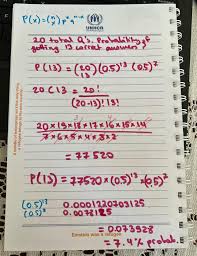 P(x) = (n x) p^x q^n-x
UNHCR
20 total Q's. Probability of
getting 13 correct answers?
P(13) = (20 13) (0.5)^13 (0.5)^7
20 C 13 = 20!
(20-13)! 13!
20 x 19 x 18 x 17 x 16 x 15 x 14
7 x 6 x 5 x 4 x 3 x 2
= 77520
P(13) = 77520 x (0.5)^13 x (0.5)^7
(0.5)^13 0.0001220703125
(0.5)^7 0.0078125
= 0.073928
= 7.4% probab.
Einstein was a refugee